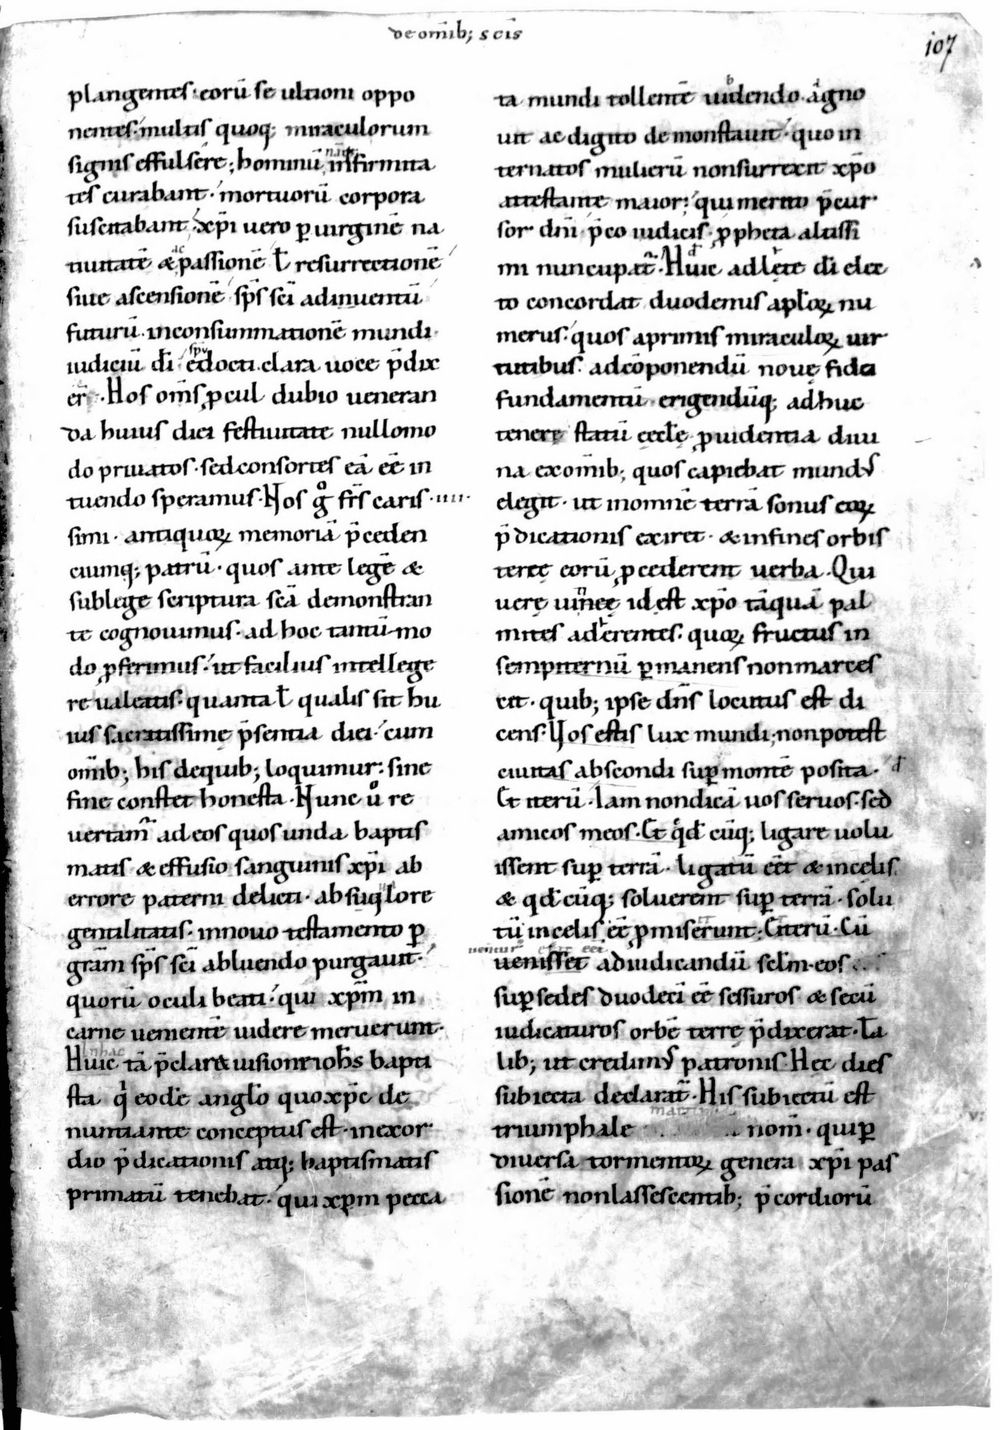 de om̄ib; scīs
107
plangentes. eorū se ultioni oppo
nentes. multis quoq; miraculorum
signis effulsére; hominū infirmita
tes curabant. mortuorū corpora
suscitabant. xp̄i uero ꝑ uirginē na
tiuitatē & passionē ł resurrectionē
siue ascensionē sp̄s sc̄i adinuentū
futurū. inconsummationē mundi
iudiciū dī spū edocti. clara uoce p̄dix
er̄. Hos om̄s ꝓcul dubio ueneran
da huius diei festiuitate nullomo
do priuatos. sed consortes eā eē in
tuendo speramus. Nos g̊ fr̄s caris .iiii.
simi. antiquoꝝ memoriā p̄ceden
ciumq; patrū. quos ante legē &
sublege scriptura sc̄a demonstran
te cognouimus. ad hoc tantū mo
do ꝓferimus. ut facilius intellege
re ualeatis. quanta ł qualis sit hu
ius sacratissime p̄sentia diei. cum
om̄ib; his dequib; loquimur. sine
fine constet honesta. Nunc ů re
uertam̃ ad eos quos unda baptis
matis & effusio sanguinis xp̄i ab
errore paterni delicti. absuq̨lore
gentilitatis. innouo testamento ꝑ
gr̄am sp̄s sc̄i abluendo purgauit.
quorū oculi beati. qui xp̄m in
carne uenientē uidere meruerunt.
Huic tā p̄clare uisioni ioh̄s bapti
sta q̇ eodē anglo quo xp̄c de
nuntiante conceptus est. inexor
dio p̄dicationis atq; baptismatis
primatū tenebat. qui xp̄m pecca
ta mundi tollentē uidendo. agno
uit ac digito demonstrauit. quo in
ternatos mulierū non surrexit xp̄o
attestante maior; qui merito p̄cur
sor dn̄i p̄co iudicis. ꝓpheta altissi
mi nuncupat̃. Huic adlete dī elec
to concordat duodenus apl̄oꝝ nu
merus. quos aprimis miraculoꝝ uir
tutibus. adcōponendū noue fidei
fundamentū erigendūq; ad huc
tenerę statū ęccłę ꝓuidentia diui
na exom̄ib; quos capiebat mundus
elegit. ut inomnē terrā sonus eoꝝ
p̄dicationis exiret. & infines orbis
terrę eorū ꝓcederent uerba. Qui
uerę uineę id est xp̄o tāquā pal
mites adherentes. quoꝝ fructus in
sempiternū ꝑmanens non marces
cit. quib; ipse dn̄s locutus est di
cens. Uos estis lux mundi; non potest
ciuitas abscondi supra montē posita.
Et iterū. Iam non dicā uos seruos. sed
amicos meos. Et q̇dcūq; ligare uolu
issent sup̱ terrā. ligatū eēt & incelis.
& qdcūq; soluerent sup̱ terrā. solu
tū incelis eē ꝓmiserunt. Et iterū. Cū
uenisset adiudicandū sclm. eos
sup̱ sedes duodeci eē sessuros & secū
iudicaturos orbē terrę p̄dixerat. Ta
lib; ut credimus patronis. Hec dies
subiecta declarat̃. His subiectū est
triumphale nom̄. qui ꝑ
diuersa tormentoꝝ genera xp̄i pas
sionē non lassescentib; p̄cordiorū